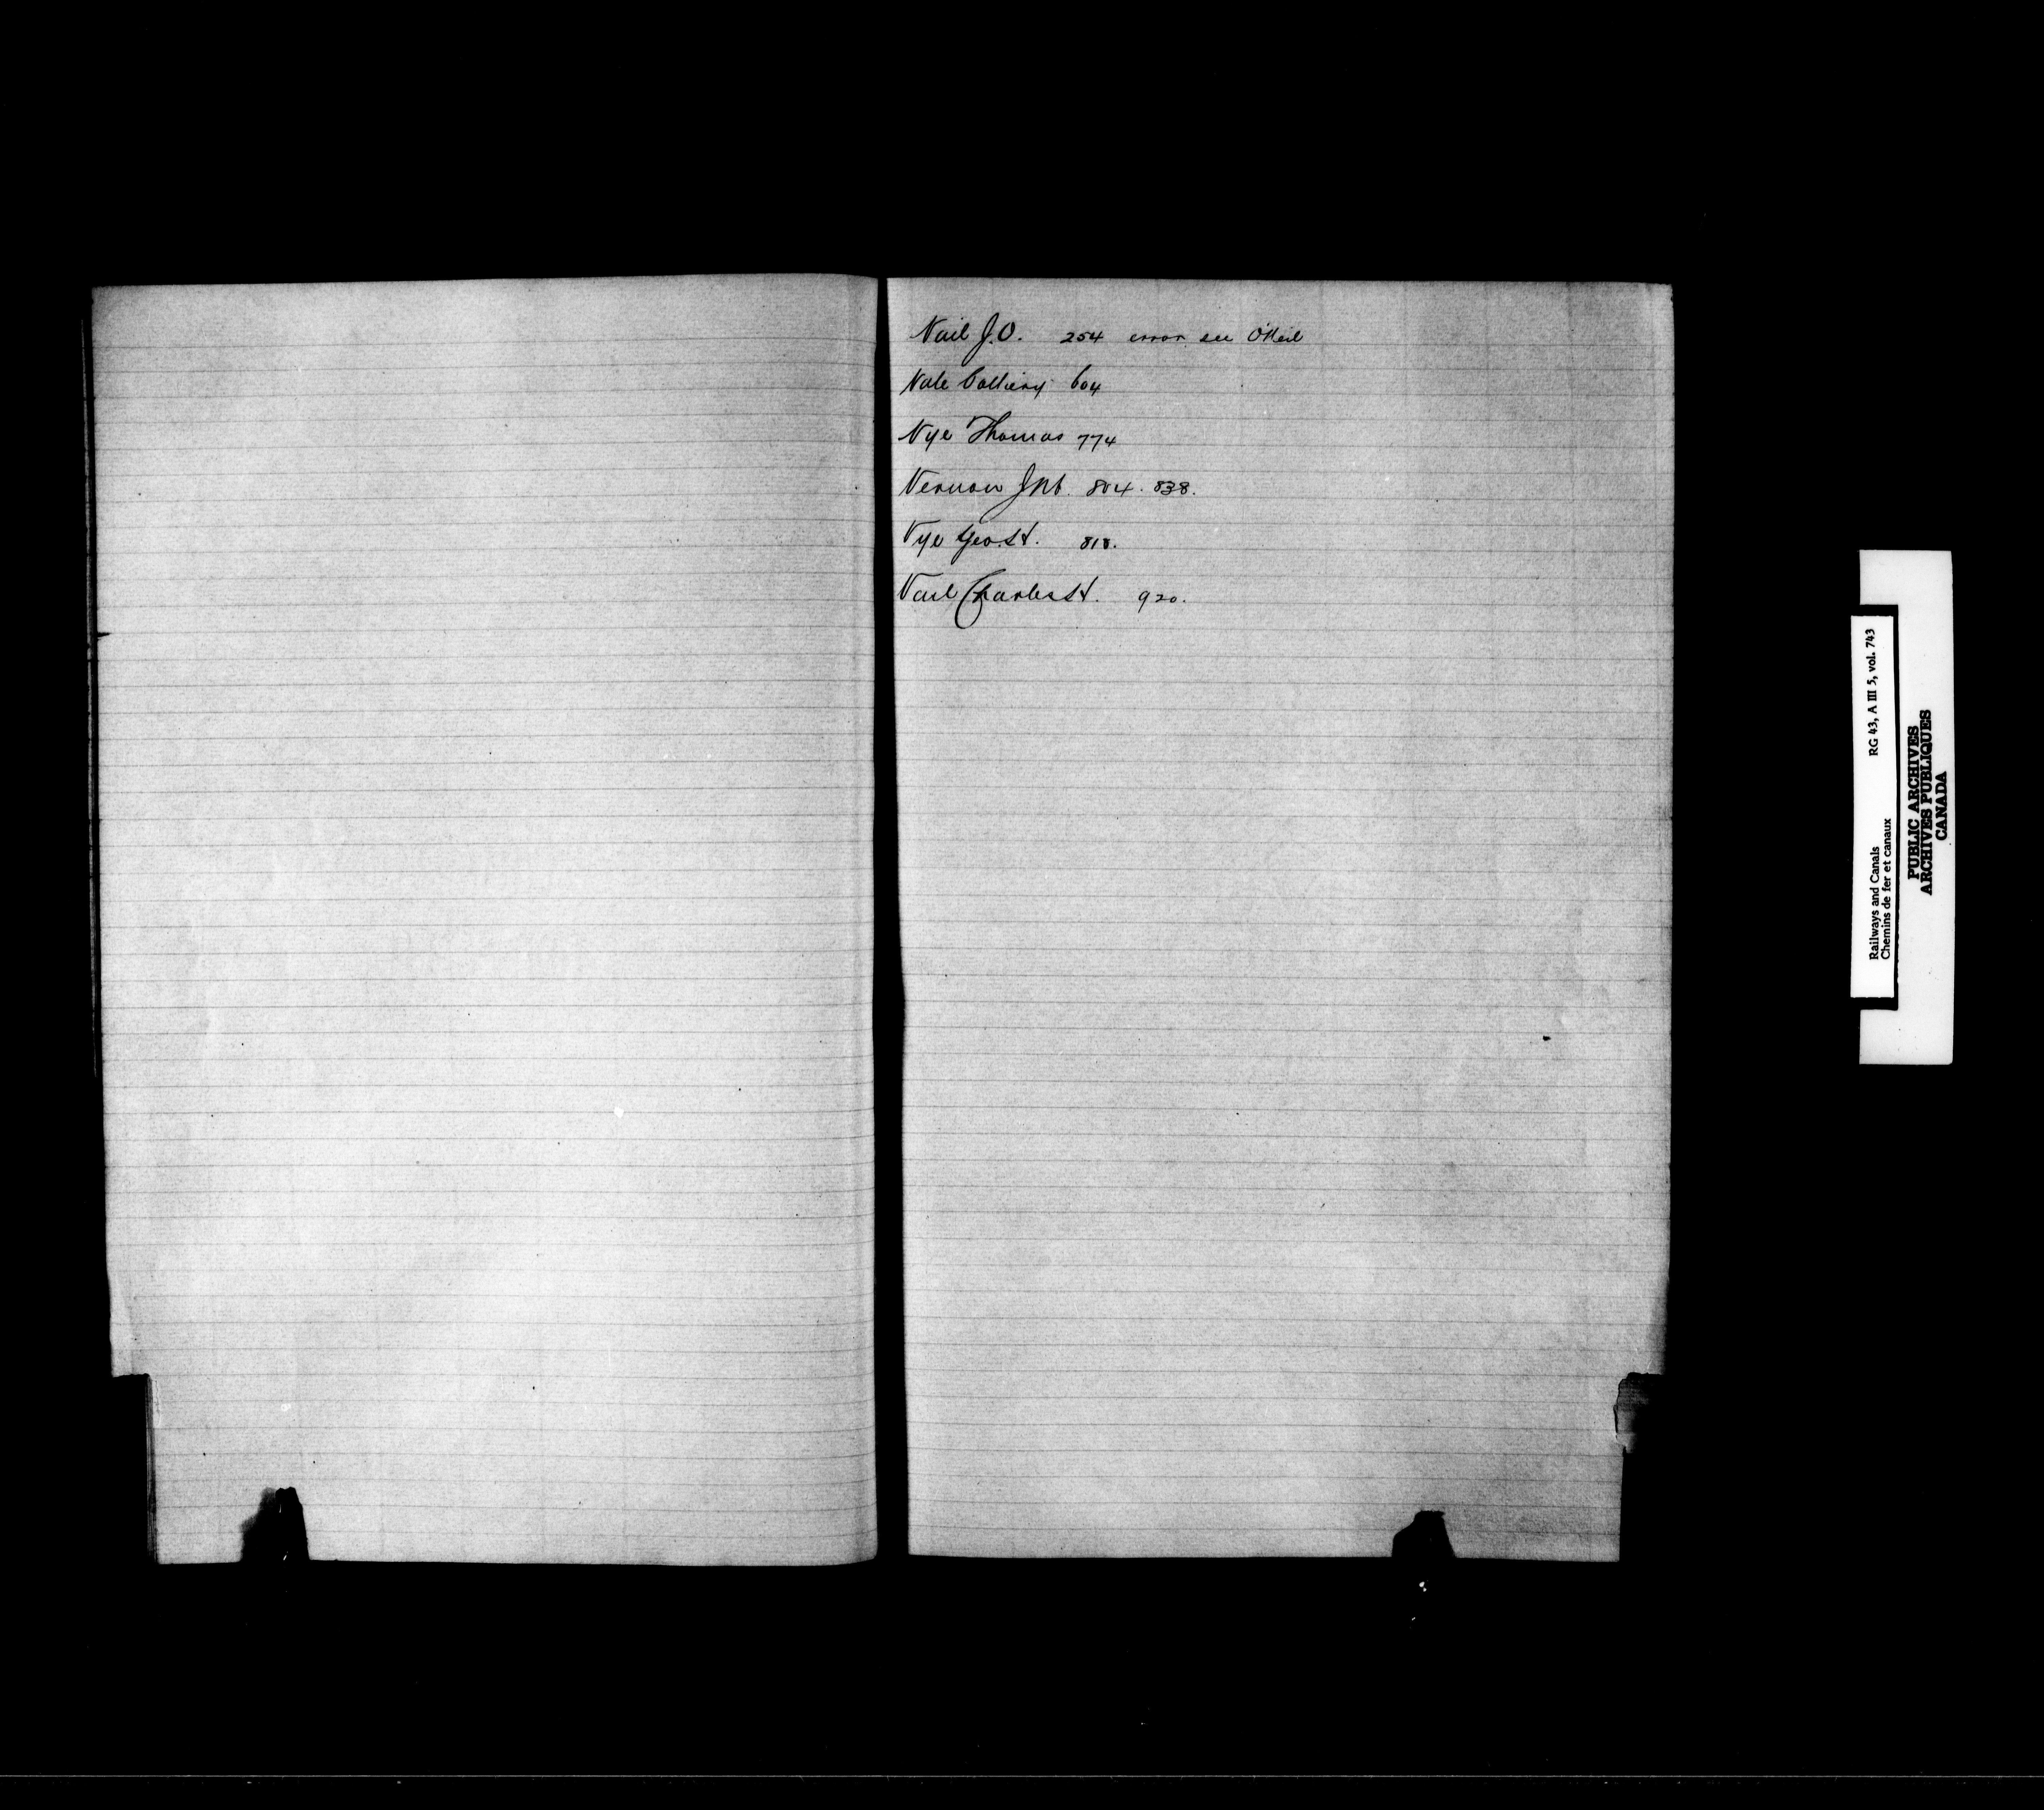 Vail J.O. 254 error see O'Neil
Vale Colliery 604
Vye Thomas 774
Vernon J N B. 804. 838.
Vye Geo. H. 818.
Vail Charles H. 920.
Railways and Canals RG 43, A III 5, vol. 743
Chemins de fer et canaux
PUBLIC ARCHIVES
ARCHIVES PUBLIQUES
CANADA